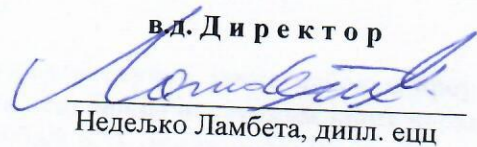 в.д. Д и р е к т о р
Недељко Ламбета, дипл. ецц